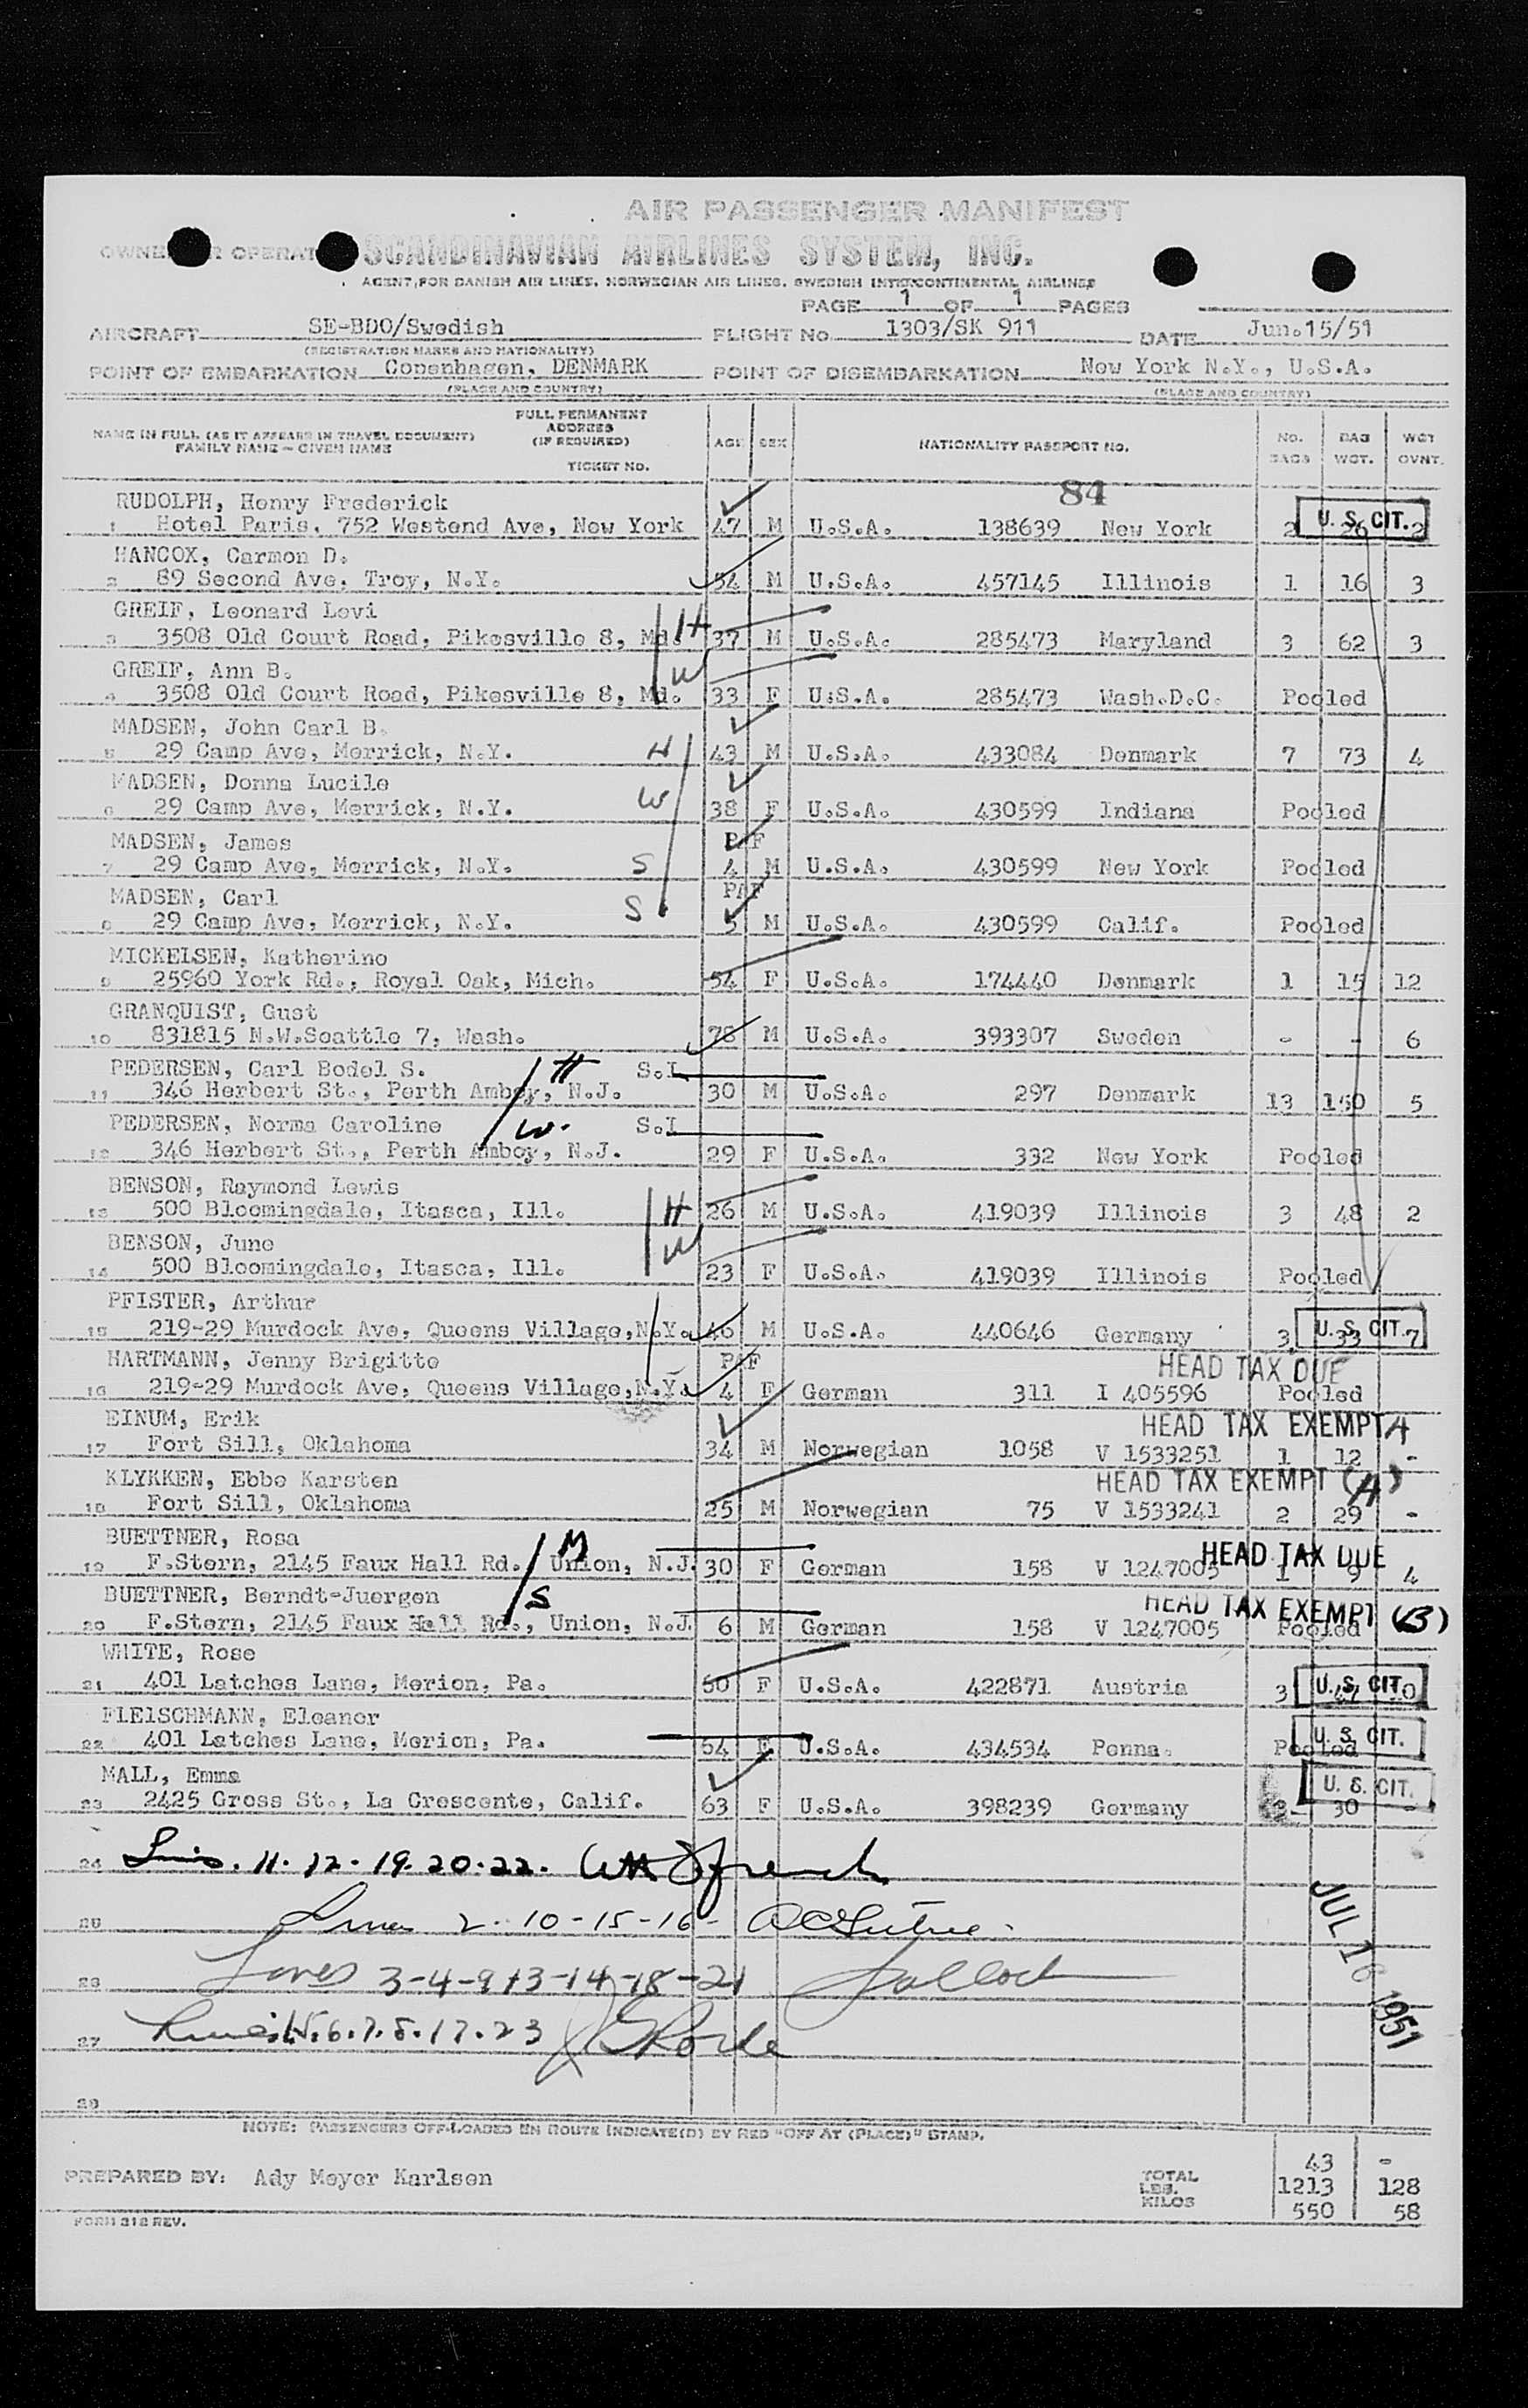 AIR PASSENGER MANIFEST
SCANDINAVIAN AIRLINES SYSTEM, INC.
AGENT FOR DANISH AIR LINES, NORWEGIAN AIR LINES, SWEDISH INTERCONTINENTAL AIRLINES
PAGE 1 OF 1 PAGES
AIRCRAFT SE-BDO/Swedish FLIGHT No. 1303/SK 911 DATE Jun.15/51
(REGISTRATION MARKS AND NATIONALITY)
POINT OF EMBARKATION Copenhagen, DENMARK POINT OF DISEMBARKATION New York N.Y., U.S.A.
(PLACE AND COUNTRY) (PLACE AND COUNTRY)
NAME IN FULL (AS IT APPEARS IN TRAVEL DOCUMENT) FAMILY NAME - GIVEN NAME FULL PERMANENT ADDRESS (IF REQUIRED) TICKET NO. AGE SEX NATIONALITY PASSPORT NO. NO. BAGS BAG WGT. WGT OVNT.
84
RUDOLPH, Henry Frederick U. S. CIT.
1 Hotel Paris, 752 Westend Ave, New York 47 M U.S.A. 138639 New York 2 26 2
HANCOX, Carmon D.
2 89 Second Ave, Troy, N.Y. 54 M U.S.A. 457145 Illinois 1 16 3
GREIF, Leonard Levi H
3 3508 Old Court Road, Pikesville 8, Md. 37 M U.S.A. 285473 Maryland 3 62 3
GREIF, Ann B. W
4 3508 Old Court Road, Pikesville 8, Md. 33 F U.S.A. 285473 Wash.D.C. Pooled
MADSEN, John Carl B.
5 29 Camp Ave, Merrick, N.Y. H 43 M U.S.A. 433084 Denmark 7 73 4
MADSEN, Donna Lucile
6 29 Camp Ave, Merrick, N.Y. W 38 F U.S.A. 430599 Indiana Pooled
MADSEN, James PAF
7 29 Camp Ave, Merrick, N.Y. S 4 M U.S.A. 430599 New York Pooled
MADSEN, Carl PAF
8 29 Camp Ave, Merrick, N.Y. S 5 M U.S.A. 430599 Calif. Pooled
MICKELSEN, Katherine
9 25960 York Rd., Royal Oak, Mich. 54 F U.S.A. 174440 Denmark 1 15 12
GRANQUIST, Gust
10 831815 N.W.Seattle 7, Wash. 78 M U.S.A. 393307 Sweden - - 6
PEDERSEN, Carl Bodel S. H S.I
11 346 Herbert St., Perth Amboy, N.J. 30 M U.S.A. 297 Denmark 13 150 5
PEDERSEN, Norma Caroline W. S.I
12 346 Herbert St., Perth Amboy, N.J. 29 F U.S.A. 332 New York Pooled
BENSON, Raymond Lewis
13 500 Bloomingdale, Itasca, Ill. H 26 M U.S.A. 419039 Illinois 3 48 2
BENSON, June W
14 500 Bloomingdale, Itasca, Ill. 23 F U.S.A. 419039 Illinois Pooled
PFISTER, Arthur U. S. CIT.
15 219-29 Murdock Ave, Queens Village,N.Y. 46 M U.S.A. 440646 Germany 3 33 7
HARTMANN, Jenny Brigitte PAF HEAD TAX DUE
16 219-29 Murdock Ave, Queens Village,N.Y. 4 F German 311 I 405596 Pooled
EINUM, Erik HEAD TAX EXEMPT A
17 Fort Sill, Oklahoma 34 M Norwegian 1058 V 1533251 1 12 -
KLYKKEN, Ebbe Karsten HEAD TAX EXEMPT (A)
18 Fort Sill, Oklahoma 25 M Norwegian 75 V 1533241 2 29 -
BUETTNER, Rosa M HEAD TAX DUE
19 F.Stern, 2145 Faux Hall Rd., Union, N.J. 30 F German 158 V 1247005 1 9 4
BUETTNER, Berndt-Juergen S HEAD TAX EXEMPT (B)
20 F.Stern, 2145 Faux Hall Rd., Union, N.J. 6 M German 158 V 1247005 Pooled
WHITE, Rose U. S. CIT.
21 401 Latches Lane, Merion, Pa. 60 F U.S.A. 422871 Austria 3
FLEISCHMANN, Eleanor U. S. CIT.
22 401 Latches Lane, Merion, Pa. 64 F U.S.A. 434534 Penna. Pooled
MALL, Emma U. S. CIT.
23 2425 Gross St., La Crescente, Calif. 63 F U.S.A. 398239 Germany 30 -
24 11. 12. 19. 20. 22. French
2. 10-15-16-
Lines 3-4-9+3-14-18-21 Pollock
27 6. 7. 8. 17. 23
JUL 16 1951
NOTE: PASSENGERS OFF-LOADED EN ROUTE INDICATE(D) BY RED "OFF AT (PLACE)" STAMP.
PREPARED BY: Ady Meyer Karlsen
TOTAL 43 -
LBS. 1213 128
KILOS 550 58
FORM 318 REV.